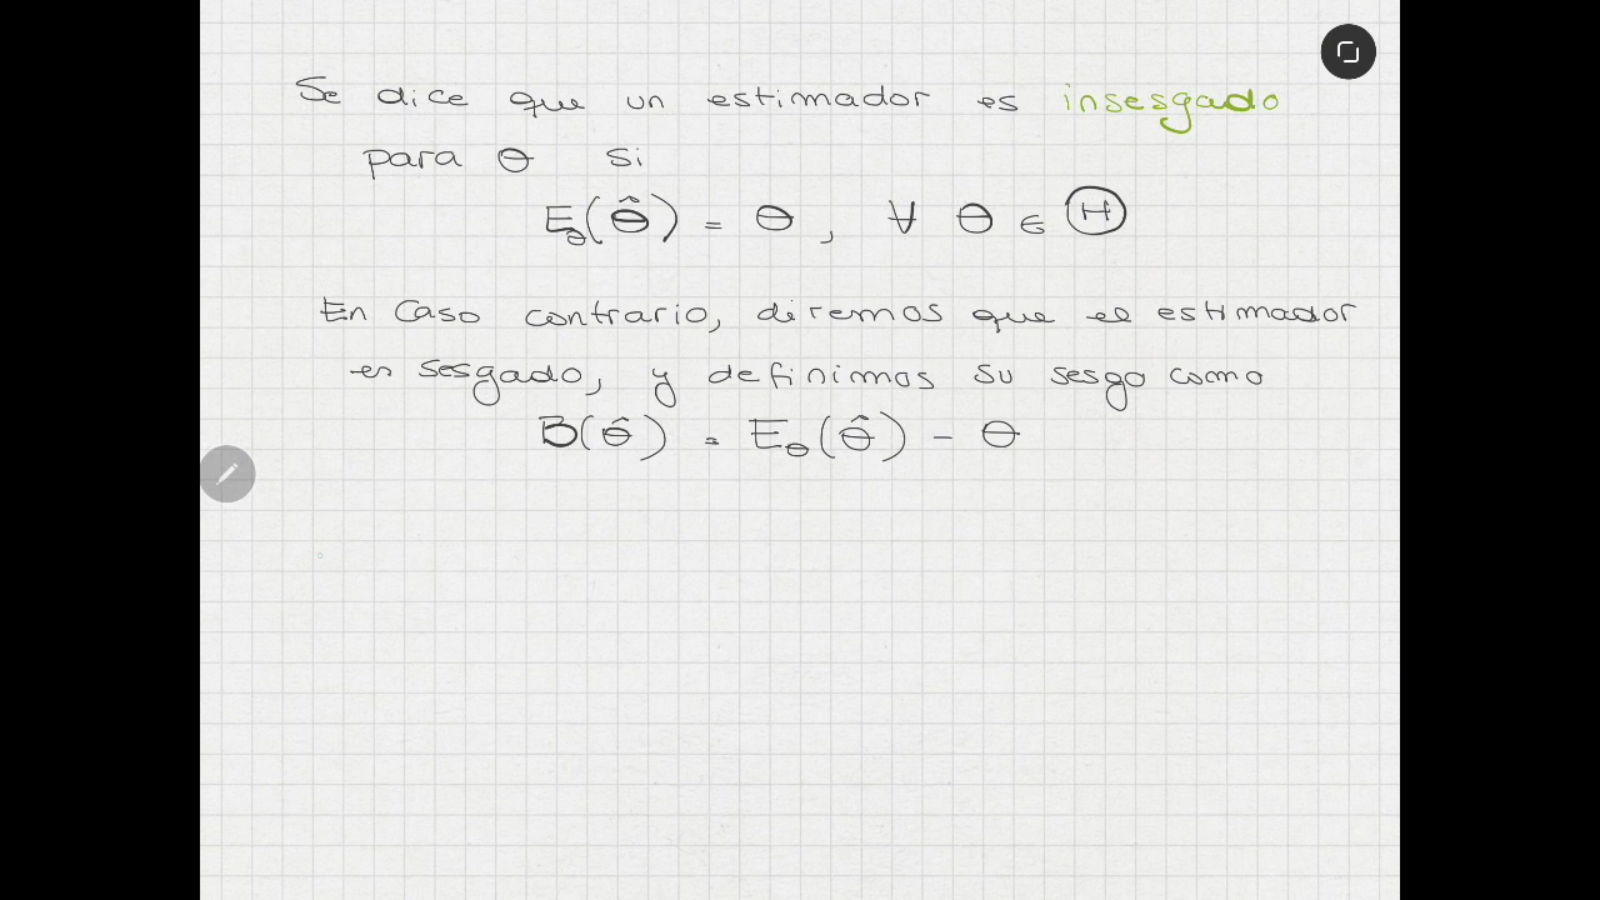 Se dice que un estimador es insesgado
para θ si
E_θ(θ̂) = θ, ∀ θ ∈ Θ
En Caso contrario, diremos que el estimador
es sesgado, y definimos su sesgo como
B(θ̂) = E_θ(θ̂) - θ